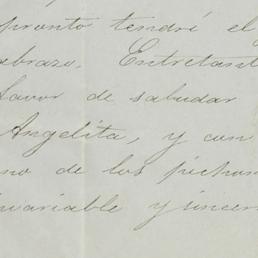 pronto tendré el
abrazo. Entretant
favor de saludar
Angelita, y con
no de los pichon
variable y sincer